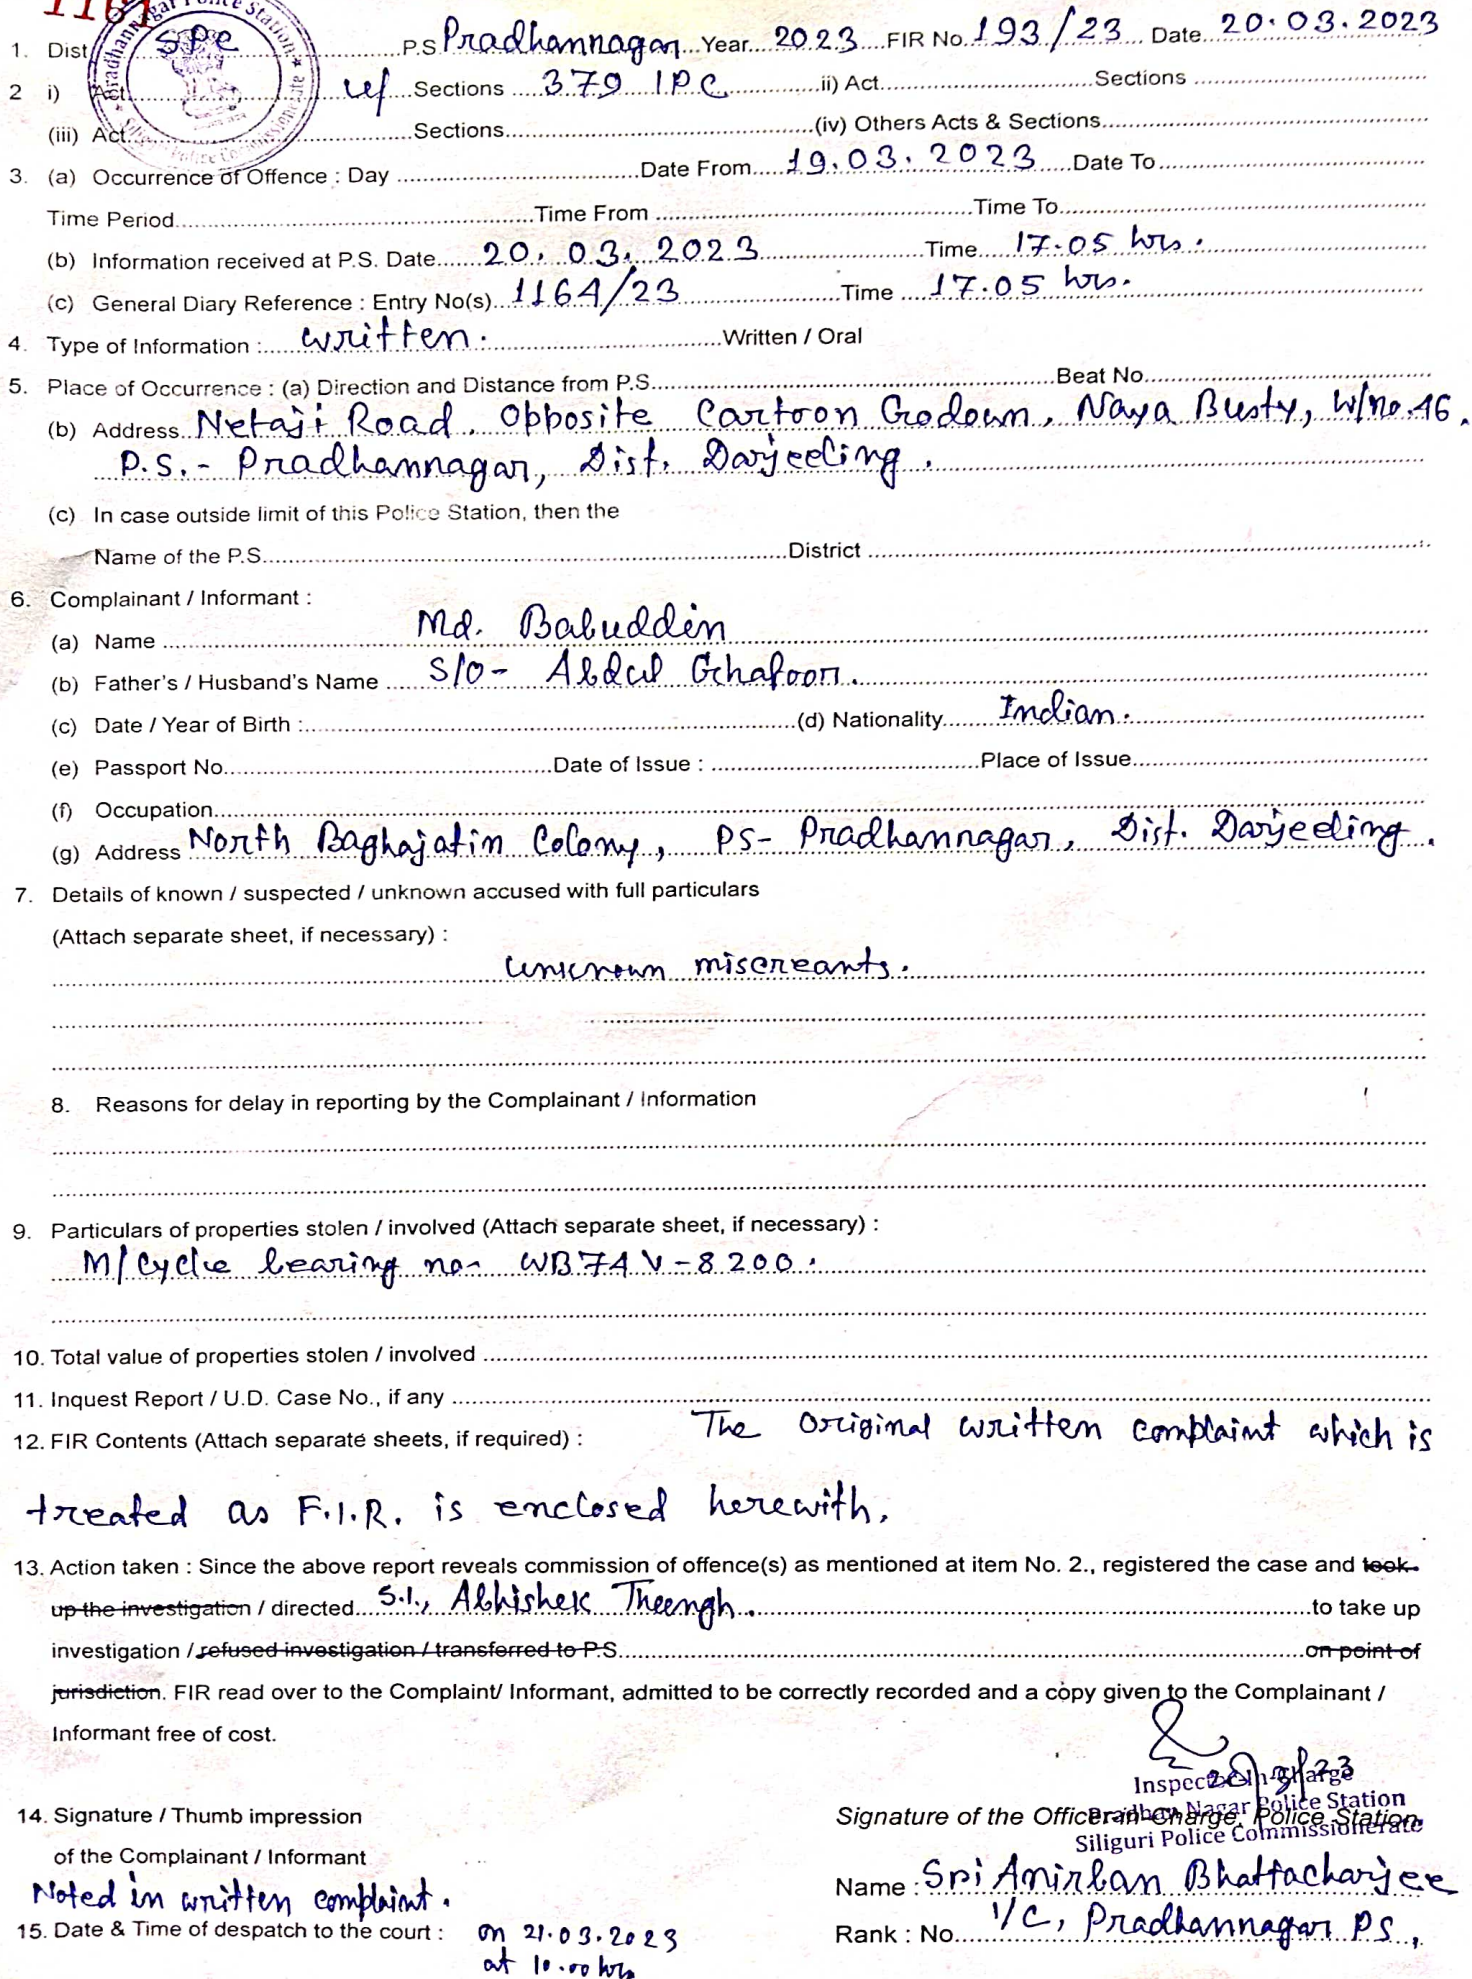 1164
Pradhannagar Police Station
Siliguri Police Commissionerate
1. Dist SPC P.S. Pradhannagar Year 2023 FIR No. 193/23 Date 20.03.2023
2 i) Act u/s Sections 379 IPC ii) Act Sections
(iii) Act Sections (iv) Others Acts & Sections
3. (a) Occurrence of Offence : Day Date From 19.03.2023 Date To
Time Period Time From Time To
(b) Information received at P.S. Date 20.03.2023 Time 17.05 hrs.
(c) General Diary Reference : Entry No(s) 1164/23 Time 17.05 hrs.
4. Type of Information : written. Written / Oral
5. Place of Occurrence : (a) Direction and Distance from P.S. Beat No.
(b) Address Netaji Road, Opposite Cartoon Godown, Naya Busty, W/no.46,
P.S.- Pradhannagar, Dist. Darjeeling.
(c) In case outside limit of this Police Station, then the
Name of the P.S. District
6. Complainant / Informant :
(a) Name Md. Babuddin
(b) Father's / Husband's Name S/O- Abdul Ghafoor.
(c) Date / Year of Birth : (d) Nationality Indian.
(e) Passport No. Date of Issue : Place of Issue
(f) Occupation
(g) Address North Baghajatin Colony, PS- Pradhannagar, Dist. Darjeeling.
7. Details of known / suspected / unknown accused with full particulars
(Attach separate sheet, if necessary) :
unknown miscreants.
8. Reasons for delay in reporting by the Complainant / Information
9. Particulars of properties stolen / involved (Attach separate sheet, if necessary) :
M/Cycle bearing no- WB74V-8200.
10. Total value of properties stolen / involved
11. Inquest Report / U.D. Case No., if any
12. FIR Contents (Attach separate sheets, if required) : The original written complaint which is
treated as F.I.R. is enclosed herewith.
13. Action taken : Since the above report reveals commission of offence(s) as mentioned at item No. 2., registered the case and took
up the investigation / directed S.I., Abhishek Theengh. to take up
investigation / refused investigation / transferred to P.S. on point of
jurisdiction. FIR read over to the Complaint/ Informant, admitted to be correctly recorded and a copy given to the Complainant /
Informant free of cost.
20/3/23
Inspector-in-Charge
14. Signature / Thumb impression Signature of the Officer-in-Charge, Police Station
Pradhan Nagar Police Station
Siliguri Police Commissionerate
of the Complainant / Informant
Noted in written complaint. Name : Sri Anirban Bhattacharjee
15. Date & Time of despatch to the court : on 21.03.2023 Rank : No. I/C, Pradhannagar PS,
at 10.00 hrs